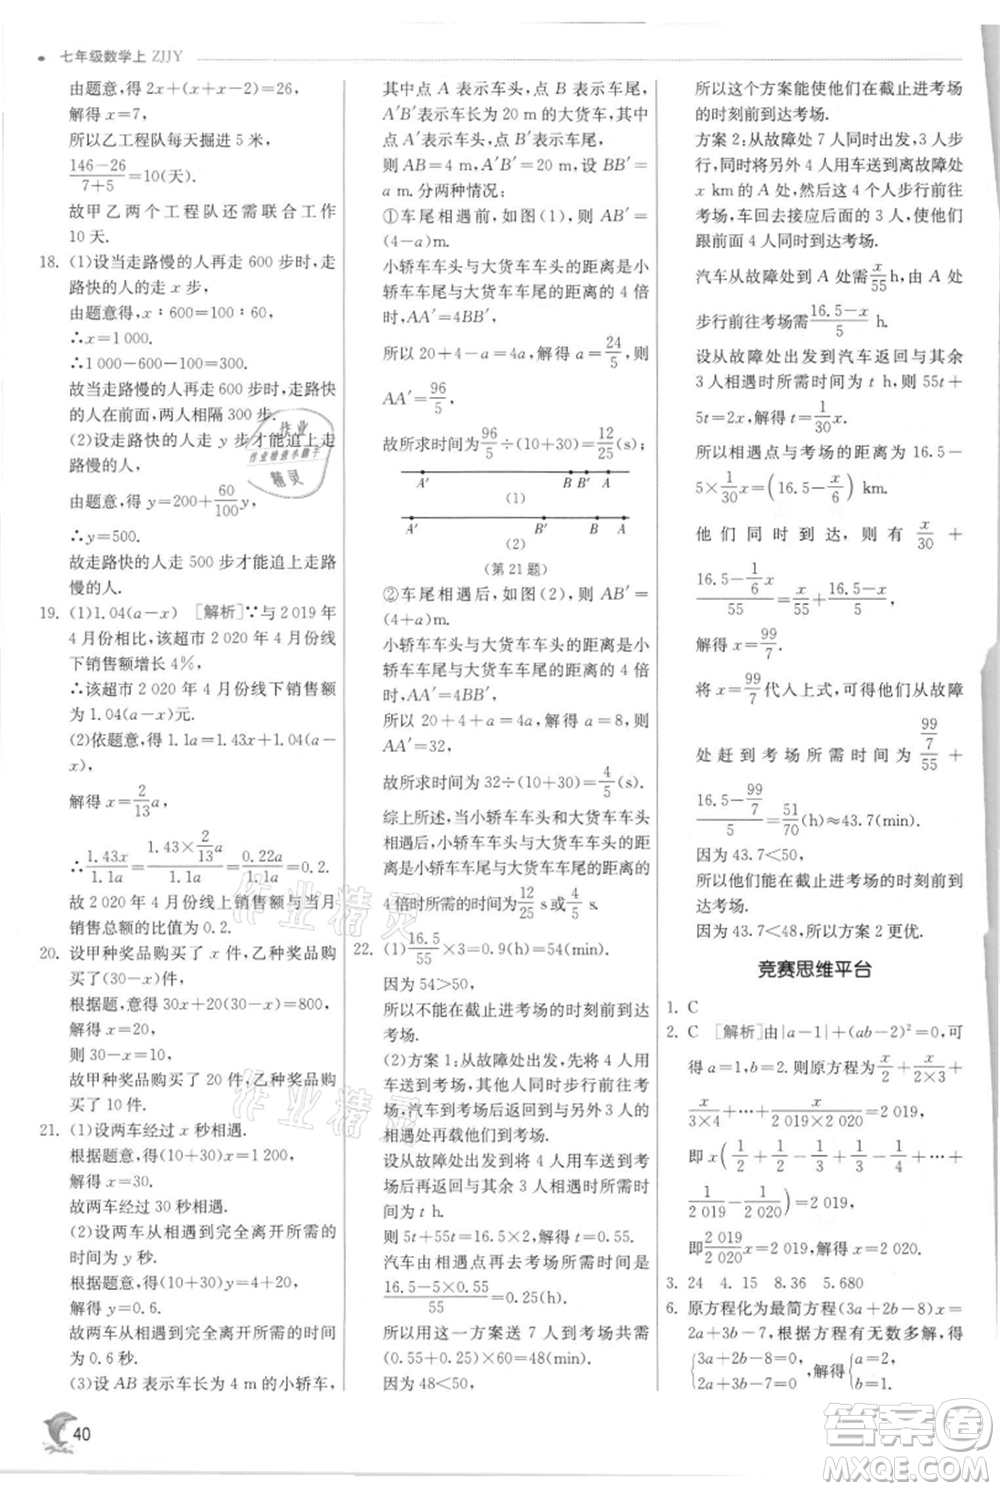 七年级数学上 ZJJY
由题意,得 2x+(x+x-2)=26,
解得 x=7,
所以乙工程队每天掘进 5 米,
$\frac{146-26}{7+5}$=10(天).
故甲乙两个工程队还需联合工作
10 天.
18. (1)设当走路慢的人再走 600 步时,走
路快的人的走 x 步,
由题意得,x∶600=100∶60,
∴x=1 000.
∴1 000-600-100=300.
故当走路慢的人再走 600 步时,走路快
的人在前面,两人相隔 300 步.
(2)设走路快的人走 y 步才能追上走
路慢的人,
由题意,得 y=200+$\frac{60}{100}$y,
∴y=500.
故走路快的人走 500 步才能追上走路
慢的人.
19. (1)1.04(a-x) [解析]∵与 2 019 年
4 月份相比,该超市 2 020 年 4 月份线
下销售额增长 4%,
∴该超市 2 020 年 4 月份线下销售额
为 1.04(a-x)元.
(2)依题意,得 1.1a=1.43x+1.04(a-
x),
解得 x=$\frac{2}{13}$a,
∴$\frac{1.43x}{1.1a}$=$\frac{1.43×\frac{2}{13}a}{1.1a}$=$\frac{0.22a}{1.1a}$=0.2.
故 2 020 年 4 月份线上销售额与当月
销售总额的比值为 0.2.
20. 设甲种奖品购买了 x 件,乙种奖品购
买了(30-x)件,
根据题意,得 30x+20(30-x)=800,
解得 x=20,
则 30-x=10,
故甲种奖品购买了 20 件,乙种奖品购
买了 10 件.
21. (1)设两车经过 x 秒相遇.
根据题意,得(10+30)x=1 200,
解得 x=30.
故两车经过 30 秒相遇.
(2)设两车从相遇到完全离开所需的
时间为 y 秒.
根据题意,得(10+30)y=4+20,
解得 y=0.6.
故两车从相遇到完全离开所需的时间
为 0.6 秒.
(3)设 AB 表示车长为 4 m 的小轿车,
40
其中点 A 表示车头,点 B 表示车尾,
A′B′表示车长为 20 m 的大货车,其中
点 A′表示车头,点 B′表示车尾,
则 AB=4 m,A′B′=20 m,设 BB′=
a m.分两种情况:
①车尾相遇前,如图(1),则 AB′=
(4-a)m.
小轿车车头与大货车车头的距离是小
轿车车尾与大货车车尾的距离的 4 倍
时,AA′=4BB′,
所以 20+4-a=4a,解得 a=$\frac{24}{5}$,则
AA′=$\frac{96}{5}$,
故所求时间为$\frac{96}{5}$÷(10+30)=$\frac{12}{25}$(s);
A′ B B′ A
(1)
A′ B′ B A
(2)
(第 21 题)
②车尾相遇后,如图(2),则 AB′=
(4+a)m.
小轿车车头与大货车车头的距离是小
轿车车尾与大货车车尾的距离的 4 倍
时,AA′=4BB′,
所以 20+4+a=4a,解得 a=8,则
AA′=32,
故所求时间为 32÷(10+30)=$\frac{4}{5}$(s).
综上所述,当小轿车车头与大货车车头
的距离是小轿车车尾与大货车车尾的
4 倍时所需的时间为$\frac{12}{25}$ s或$\frac{4}{5}$ s.
22. (1)$\frac{16.5}{55}$×3=0.9(h)=54(min).
因为 54>50,
所以不能在截止进考场的时刻前到达
考场.
(2)方案 1:从故障处出发,先将 4 人用
车送到考场,其他人同时步行前往考
场,汽车到考场后返回到与另外 4 人的
相遇处再载他们到考场.
设从故障处出发到送完 4 人用车送到
考场后再返回与其余 4 人相遇时所需时
间为 t h.
则 5t+55t=16.5×2,解得 t=0.55.
汽车由相遇点再去考场所需时间是
$\frac{16.5-5×0.55}{55}$=0.25(h).
所以用这一方案送 7 人到考场共需
(0.55+0.25)×60=48(min).
因为 48<50,
所以这个方案能使他们在截止进考场
的时刻前到达考场.
方案 2:从故障处 7 人同时出发,3 人步
行,同时将另外 4 人用车送到离故障处
x km 的 A 处,然后这 4 人步行前往
考场,车回去接应后面的 3 人,使他们
跟前面 4 人同时到达考场.
汽车从故障处到 A 处需$\frac{x}{55}$h,由 A 处
步行前往考场需$\frac{16.5-x}{5}$ h.
设从故障处出发到汽车返回与其余
3 人相遇时所需时间为 t h,则 55t+
5t=2x,解得 t=$\frac{1}{30}$x.
相遇处与考场的距离为 16.5-
5×$\frac{1}{30}$x=$\left(16.5-\frac{x}{6}\right)$ km.
他们同时到达,则有 $\frac{x}{30}$+
$\frac{16.5-\frac{1}{6}x}{55}$=$\frac{x}{55}$+$\frac{16.5-x}{5}$,
解得 x=$\frac{99}{7}$.
将 x=$\frac{99}{7}$代人上式,可得他们从故障
处赶到考场所需时间为 $\frac{\frac{99}{7}}{55}$+
$\frac{16.5-\frac{99}{7}}{5}$=$\frac{51}{70}$(h)≈43.7(min).
因为 43.7<50,
所以他们能在截止进考场的时刻前到
达考场.
因为 43.7<48,所以方案 2 更优.
竞赛思维平台
1. C
2. C [解析]由|a-1|+(ab-2)²=0,可
得 a=1,b=2,则原方程为$\frac{x}{2}$+$\frac{x}{2×3}$+
$\frac{x}{3×4}$+…+$\frac{x}{2 019×2 020}$=2 019,
即 x($\frac{1}{2}$+$\frac{1}{2}$-$\frac{1}{3}$+$\frac{1}{3}$-$\frac{1}{4}$+…+
$\frac{1}{2 019}$-$\frac{1}{2 020}$)=2 019,
即$\frac{2 019}{2 020}$x=2 019,解得 x=2 020.
3. 24 4. 15 8.36 5.680
6. 原方程化为最简方程(3a+2b-8)x=
2a+3b-7,根据方程有无数多解,得
$\begin{cases}3a+2b-8=0,\\2a+3b-7=0,\end{cases}$解得$\begin{cases}a=2,\\b=1.\end{cases}$
作业
作业检查小助手
精灵
作业精灵
作业精灵
答案圈
MXQE.COM